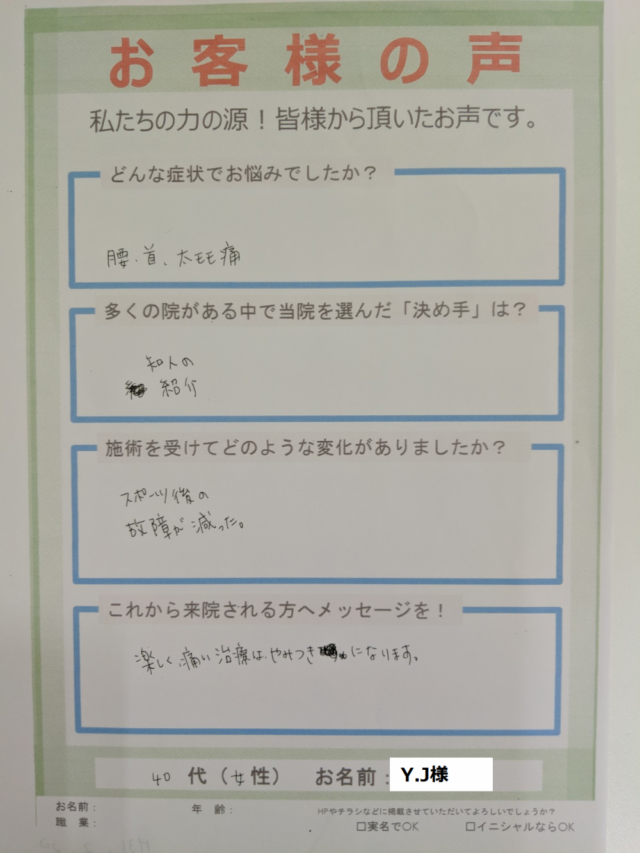 お客様の声
私たちの力の源！皆様から頂いたお声です。
どんな症状でお悩みでしたか？
腰、首、太モモ痛
多くの院がある中で当院を選んだ「決め手」は？
知人の
紹介
施術を受けてどのような変化がありましたか？
スポーツ後の
故障が減った。
これから来院される方へメッセージを！
楽しく、痛い治療はやみつきになります。
40 代（女性） お名前：Y.J様
お名前： 年 齢： HPやチラシなどに掲載させていただいてよろしいでしょうか？
職 業： □実名でOK □イニシャルならOK